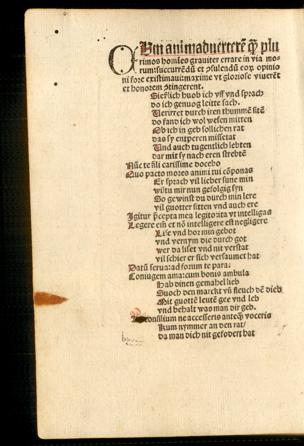 Cum animaduerterē qͥ plu
rimos homīes grauiter errare in via mo-
rum: succurrēdū et ↄsulēdū eoꝝ opinio
ni fore existimaui: maxime vt gloriose viuerēt
et honorem ↄtingerent.
Sit
lich huob ich vff vnd sprach
do ich genuog leitte sach.
Verirret durch iren thummē sitē
do fand ich wol wesen mitten
Ob ich in geb sollichen rat
das sy entperen missetat
Vnd auch tugentlich lebten
dar mit sy nach eren strebtē
Nūc te fili carissime docebo
Quo pacto mores animi tui cōponas
Er sprach vil lieber sune min
wiltu mir nun gefolgig syn
So gewinst du durch min lere
vil guotter sitten vnd auch ere
Igitur p̄cepta mea legito ita vt intelligas
Legere em̄ et nō intelligere est negligere
Lise vnd hör min gebot
vnd vernym die durch got
wer da liset vnd nit verstat
vil schier er sich versaumet hat
Datū serua: ad forum te para:
Coniugem ama: cum bonis ambula
Hab dinen gemahel lieb
Suoch den marckt vn̄ fleuch dē dieb
Mit guottē leutē gee vnd leb
vnd behalt was man dir geb.
consilium ne accesseris anteq̄ͣ voceris
Kum nymmer an den rat/
da man dich nit gefodert hat